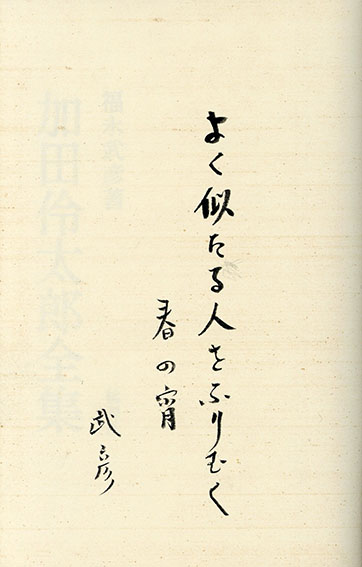 よく似たる人をふりむく
春の宵
武彦
福永武彦著
加田伶太郎全集